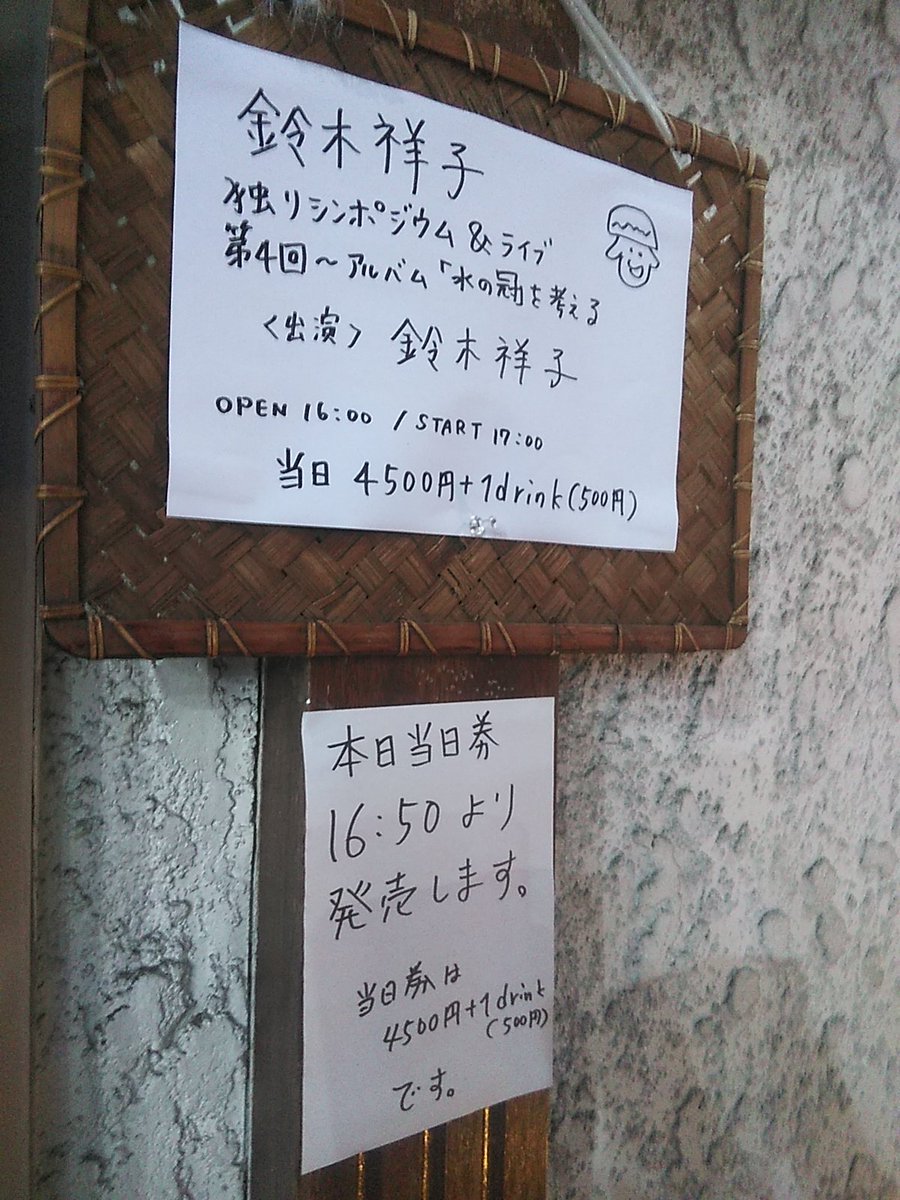 鈴木祥子
独りシンポジウム&ライブ
第4回～アルバム「水の冠」を考える
〈出演〉 鈴木祥子
OPEN 16:00 / START 17:00
当日 4500円+1drink(500円)
本日当日券
16:50より
発売します。
当日券は
4500円+1drink
(500円)
です。